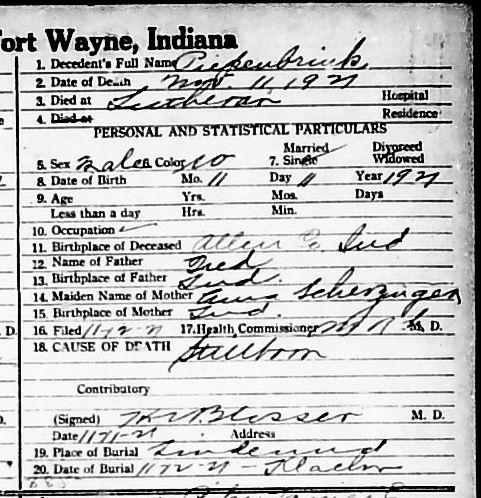 Fort Wayne, Indiana
1. Decedent's Full Name Piepenbrink
2. Date of Death Nov. 11, 1921
3. Died at Lutheran Hospital
4. Died at Residence
PERSONAL AND STATISTICAL PARTICULARS
Married Divorced
5. Sex Male 6. Color W 7. Single Widowed
8. Date of Birth Mo. 11 Day 11 Year 1921
9. Age Yrs. Mos. Days
Less than a day Hrs. Min.
10. Occupation
11. Birthplace of Deceased Allen Co Ind
12. Name of Father Fred
13. Birthplace of Father Ind.
14. Maiden Name of Mother Scherzinger
15. Birthplace of Mother Ind.
16. Filed 17. Health Commissioner M. D.
18. CAUSE OF DEATH Stillborn
Contributory
(Signed) M. D.
Date Address
19. Place of Burial Lindenwood
20. Date of Burial